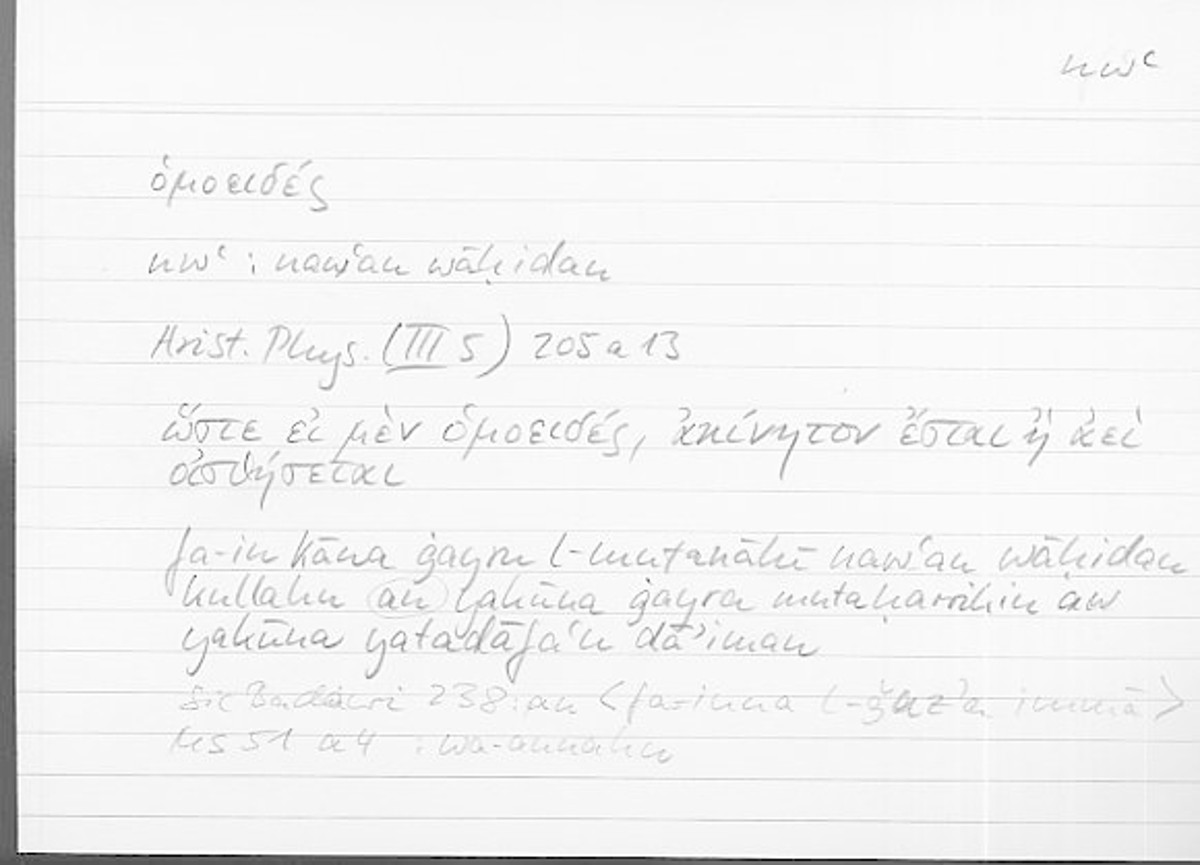 nwʿ
ὁμοειδές
nwʿ : nawʿan wāḥidan
Arist. Phys. (III 5) 205 a 13
ὥστε εἰ μὲν ὁμοειδές, ἀκίνητον ἔσται ἢ ἀεὶ
οἰσθήσεται
fa-in kāna ġayru l-mutanāhī nawʿan wāḥidan
kullahu an yakūna ġayra mutaḥarrikin aw
yakūna yatadāfaʿu dāʾiman
sic Badawi 238: an <fa-inna l-ǧazʾa immā>
Ms 51 a 4 : wa-annahu